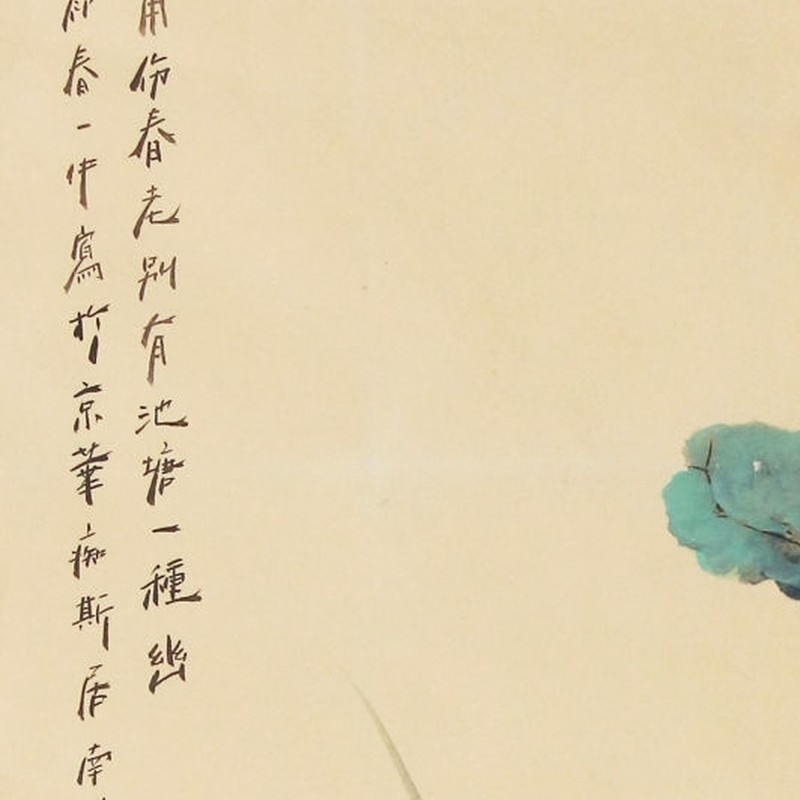 用伤春老別有池塘一種幽
春一中寫於京華痴斯居南